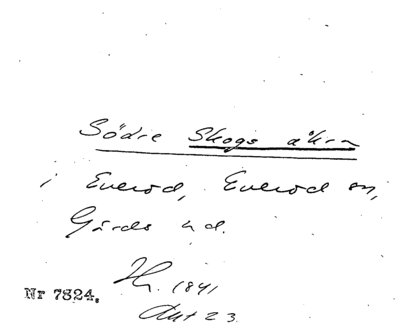 Södre Skogs åkra
i Everöd, Everöd sn,
Gärds hd.
Nr 7824. 1841
Akt 23